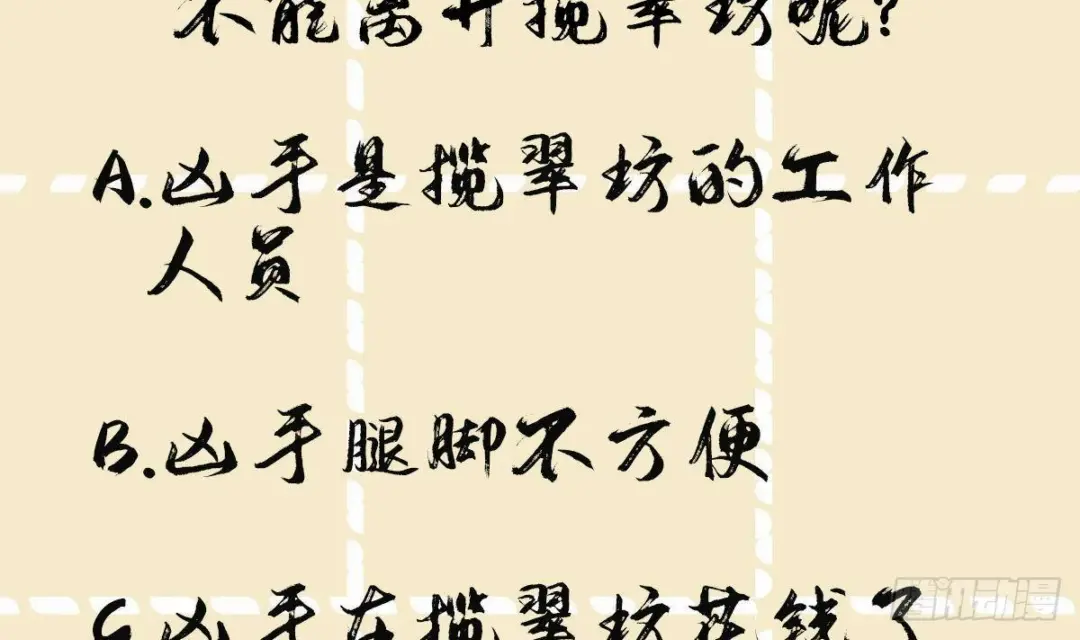 不能离开揽翠坊呢?
A.凶手是揽翠坊的工作
人员
B.凶手腿脚不方便
C凶手在揽翠坊花钱了
腾讯动漫